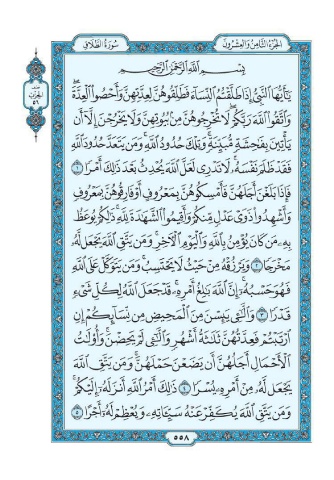 الجزء الثامن والعشرون
سورة الطلاق
بِسْمِ اللَّهِ الرَّحْمَٰنِ الرَّحِيمِ
يَٰٓأَيُّهَا ٱلنَّبِىُّ إِذَا طَلَّقْتُمُ ٱلنِّسَآءَ فَطَلِّقُوهُنَّ لِعِدَّتِهِنَّ وَأَحْصُوا۟ ٱلْعِدَّةَ ۖ
وَٱتَّقُوا۟ ٱللَّهَ رَبَّكُمْ ۖ لَا تُخْرِجُوهُنَّ مِنۢ بُيُوتِهِنَّ وَلَا يَخْرُجْنَ إِلَّآ أَن
يَأْتِينَ بِفَٰحِشَةٍ مُّبَيِّنَةٍ ۚ وَتِلْكَ حُدُودُ ٱللَّهِ ۚ وَمَن يَتَعَدَّ حُدُودَ ٱللَّهِ
فَقَدْ ظَلَمَ نَفْسَهُۥ ۚ لَا تَدْرِى لَعَلَّ ٱللَّهَ يُحْدِثُ بَعْدَ ذَٰلِكَ أَمْرًا ١
فَإِذَا بَلَغْنَ أَجَلَهُنَّ فَأَمْسِكُوهُنَّ بِمَعْرُوفٍ أَوْ فَارِقُوهُنَّ بِمَعْرُوفٍ
وَأَشْهِدُوا۟ ذَوَىْ عَدْلٍ مِّنكُمْ وَأَقِيمُوا۟ ٱلشَّهَٰدَةَ لِلَّهِ ۚ ذَٰلِكُمْ يُوعَظُ
بِهِۦ مَن كَانَ يُؤْمِنُ بِٱللَّهِ وَٱلْيَوْمِ ٱلْـَٔاخِرِ ۚ وَمَن يَتَّقِ ٱللَّهَ يَجْعَل لَّهُۥ
مَخْرَجًا ٢ وَيَرْزُقْهُ مِنْ حَيْثُ لَا يَحْتَسِبُ ۚ وَمَن يَتَوَكَّلْ عَلَى ٱللَّهِ
فَهُوَ حَسْبُهُۥٓ ۚ إِنَّ ٱللَّهَ بَٰلِغُ أَمْرِهِۦ ۚ قَدْ جَعَلَ ٱللَّهُ لِكُلِّ شَىْءٍ
قَدْرًا ٣ وَٱلَّٰٓـِٔى يَئِسْنَ مِنَ ٱلْمَحِيضِ مِن نِّسَآئِكُمْ إِنِ
ٱرْتَبْتُمْ فَعِدَّتُهُنَّ ثَلَٰثَةُ أَشْهُرٍ وَٱلَّٰٓـِٔى لَمْ يَحِضْنَ ۚ وَأُو۟لَٰتُ
ٱلْأَحْمَالِ أَجَلُهُنَّ أَن يَضَعْنَ حَمْلَهُنَّ ۚ وَمَن يَتَّقِ ٱللَّهَ
يَجْعَل لَّهُۥ مِنْ أَمْرِهِۦ يُسْرًا ٤ ذَٰلِكَ أَمْرُ ٱللَّهِ أَنزَلَهُۥٓ إِلَيْكُمْ ۚ
وَمَن يَتَّقِ ٱللَّهَ يُكَفِّرْ عَنْهُ سَيِّـَٔاتِهِۦ وَيُعْظِمْ لَهُۥٓ أَجْرًا ٥
٥٥٨